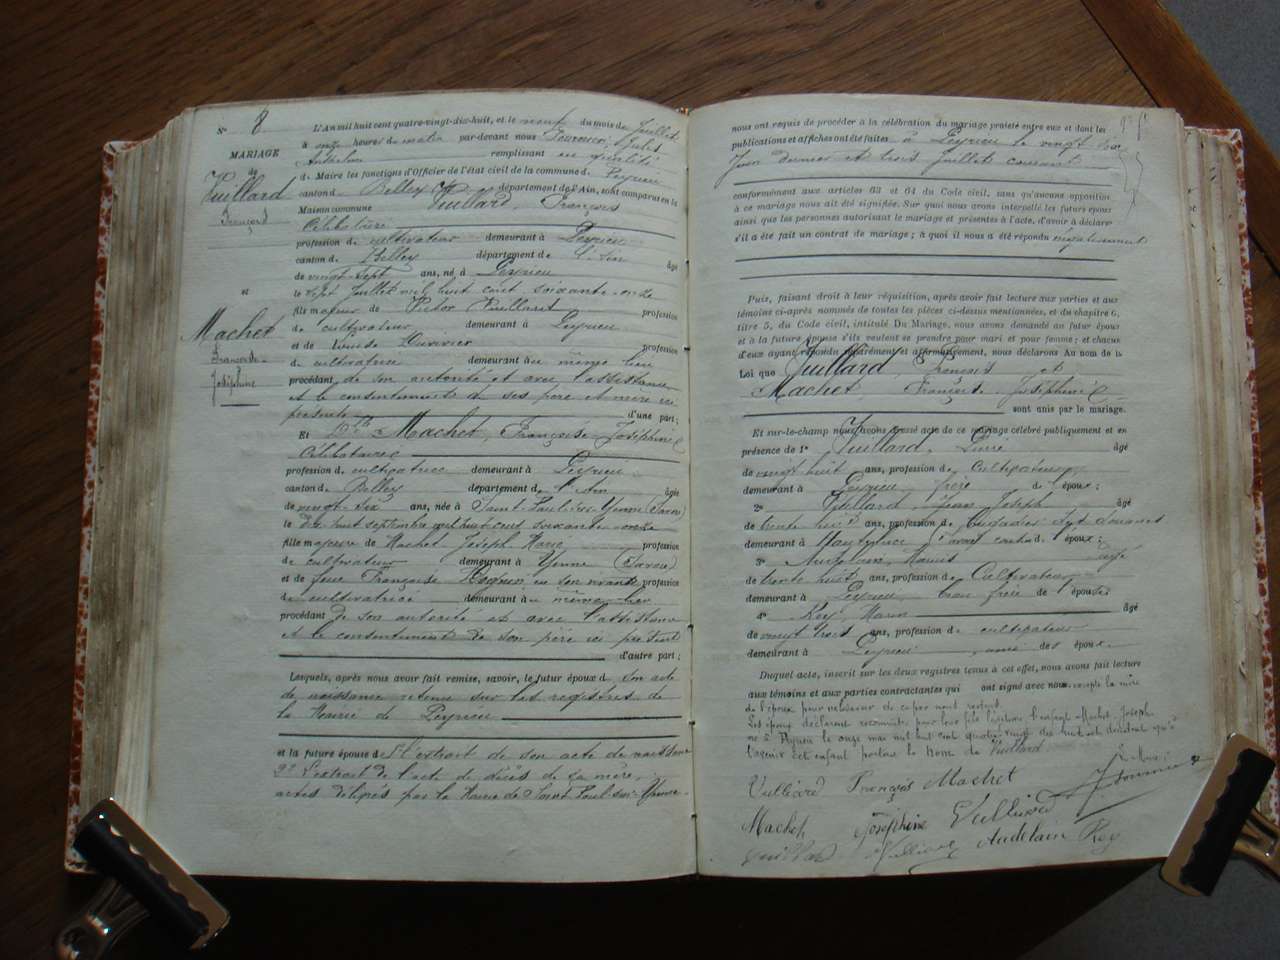 N° 8
MARIAGE
de
Vuillard
François
et
Machet
Françoise
Joséphine
L'An mil huit cent quatre-vingt-dix-huit, et le neuf du mois de Juillet
à onze heures du matin par-devant nous Fournier, Jules
Anthelme remplissant en qualité
d. Maire les fonctions d'Officier de l'état civil de la commune d. Peyrieu
canton d. Belley département de l'Ain, sont comparus en la
Maison commune Vuillard, François
Célibataire
profession d. cultivateur demeurant à Peyrieu
canton d. Belley département de l'Ain âgé
de vingt-sept ans, né à Peyrieu
le sept Juillet mil huit cent soixante-onze
fils majeur de Victor Vuillard profession
de cultivateur demeurant à Peyrieu
et de Louise profession
d. cultivatrice demeurant au même lieu
procédant de son autorité et avec l'assistance
et le consentement de ses père et mère ici
présents d'une part ;
Et Dlle Machet, Françoise Joséphine
Célibataire
profession d. cultivatrice demeurant à Peyrieu
canton d. Belley département de l'Ain âgée
de vingt-six ans, née à Saint-Paul-sur-Yenne (Savoie)
le dix huit septembre mil huit cent soixante-onze
fille majeure de Machet Joseph Marie profession
de cultivateur demeurant à Yenne (Savoie)
et de feue Françoise en son vivant profession
de cultivatrice demeurant au même lieu
procédant de son autorité et avec l'assistance
et le consentement de son père ici présent
d'autre part ;
Lesquels, après nous avoir fait remise, savoir, le futur époux d. son acte
de naissance retenu sur les registres de
la Mairie de Peyrieu
et la future épouse d. 1° l'extrait de son acte de naissance
2° l'extrait de l'acte de décès de sa mère,
actes délivrés par la Mairie de Saint Paul-sur-Yenne
nous ont requis de procéder à la célébration du mariage projeté entre eux et dont les
publications et affiches ont été faites à Peyrieu le vingt-six
Juin dernier et trois Juillet courant
conformément aux articles 63 et 64 du Code civil, sans qu'aucune opposition
à ce mariage nous ait été signifiée. Sur quoi nous avons interpellé les futurs époux
ainsi que les personnes autorisant le mariage et présentes à l'acte, d'avoir à déclarer
s'il a été fait un contrat de mariage ; à quoi il nous a été répondu négativement
Puis, faisant droit à leur réquisition, après avoir fait lecture aux parties et aux
témoins ci-après nommés de toutes les pièces ci-dessus mentionnées, et du chapitre 6,
titre 5, du Code civil, intitulé Du Mariage, nous avons demandé au futur époux
et à la future épouse s'ils veulent se prendre pour mari et pour femme ; et chacun
d'eux ayant répondu séparément et affirmativement, nous déclarons Au nom de la
Loi que Vuillard, François et
Machet, Françoise Joséphine
sont unis par le mariage.
Et sur-le-champ nous avons dressé acte de ce mariage célébré publiquement et en
présence de 1° Vuillard, Pierre âgé
de vingt huit ans, profession de Cultivateur
demeurant à Peyrieu frère de l'époux ;
2° Vuillard, Jean Joseph âgé
de trente ans, profession de brigadier des douanes
demeurant à d. époux ;
3° âgé
de trente huit ans, profession de Cultivateur
demeurant à Peyrieu beau frère de l'époux
4° Rey Marin âgé
de vingt trois ans, profession d. cultivateur
demeurant à Peyrieu ami des époux
Duquel acte, inscrit sur les deux registres tenus à cet effet, nous avons fait lecture
aux témoins et aux parties contractantes qui ont signé avec nous excepté la mère
de l'époux pour
Les époux déclarent reconnaître pour leur fils légitime l'enfant Machet Joseph
né à Peyrieu le onze mai mil huit cent quatre vingt dix huit et déclarent qu'à
l'avenir cet enfant portera le nom de Vuillard
Le Maire
Vulliard François Machet J Fournier
Machet Joséphine Vulliard
Vuillard Vulliard Rey